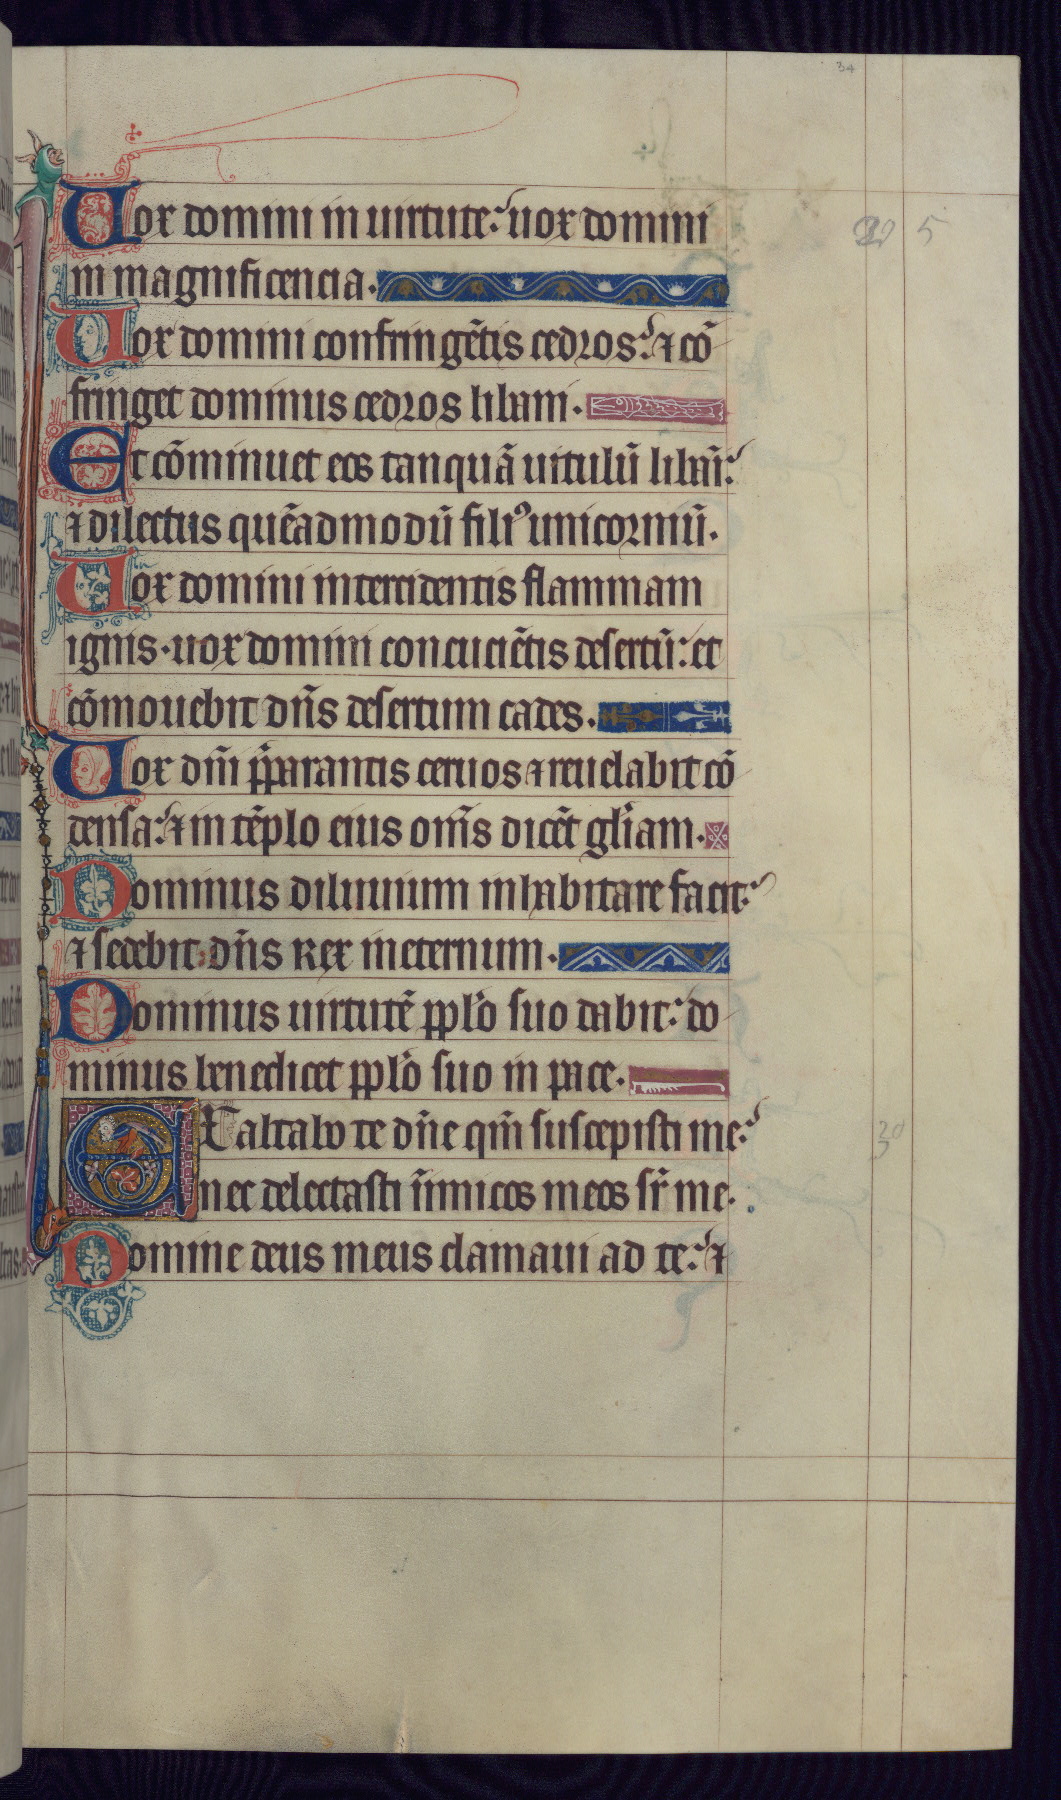 34
Uox domini in uirtute: uox domini
in magnificencia.
29 5
Uox domini confringẽtis cedros: ⁊ cõ
fringet dominus cedros libani.
Et cõminuet eos tanquã uitulũ libãi:
⁊ dilectus quẽadmodũ filiꝰ unicorniũ.
Uox domini intercidentis flammam
ignis. uox domini concuciẽtis desertũ: et
cõmouebit dñs desertum cades.
Uox dñi p̃parantis ceruos ⁊ reuelabit cõ
densa: ⁊ in tẽplo eius om̃s dicẽt gl̃iam.
Dominus diluuium inhabitare facit:
⁊ sedebit dñs Rex ineternum.
Dominus uirtutẽ ppl̃o suo dabit: do
minus benedicet ppl̃o suo in pace.
Exaltabo te dñe qm̃ suscepisti me:
30
nec delectasti ĩnimicos meos sr̃ me.
Domine deus meus clamaui ad te: ⁊